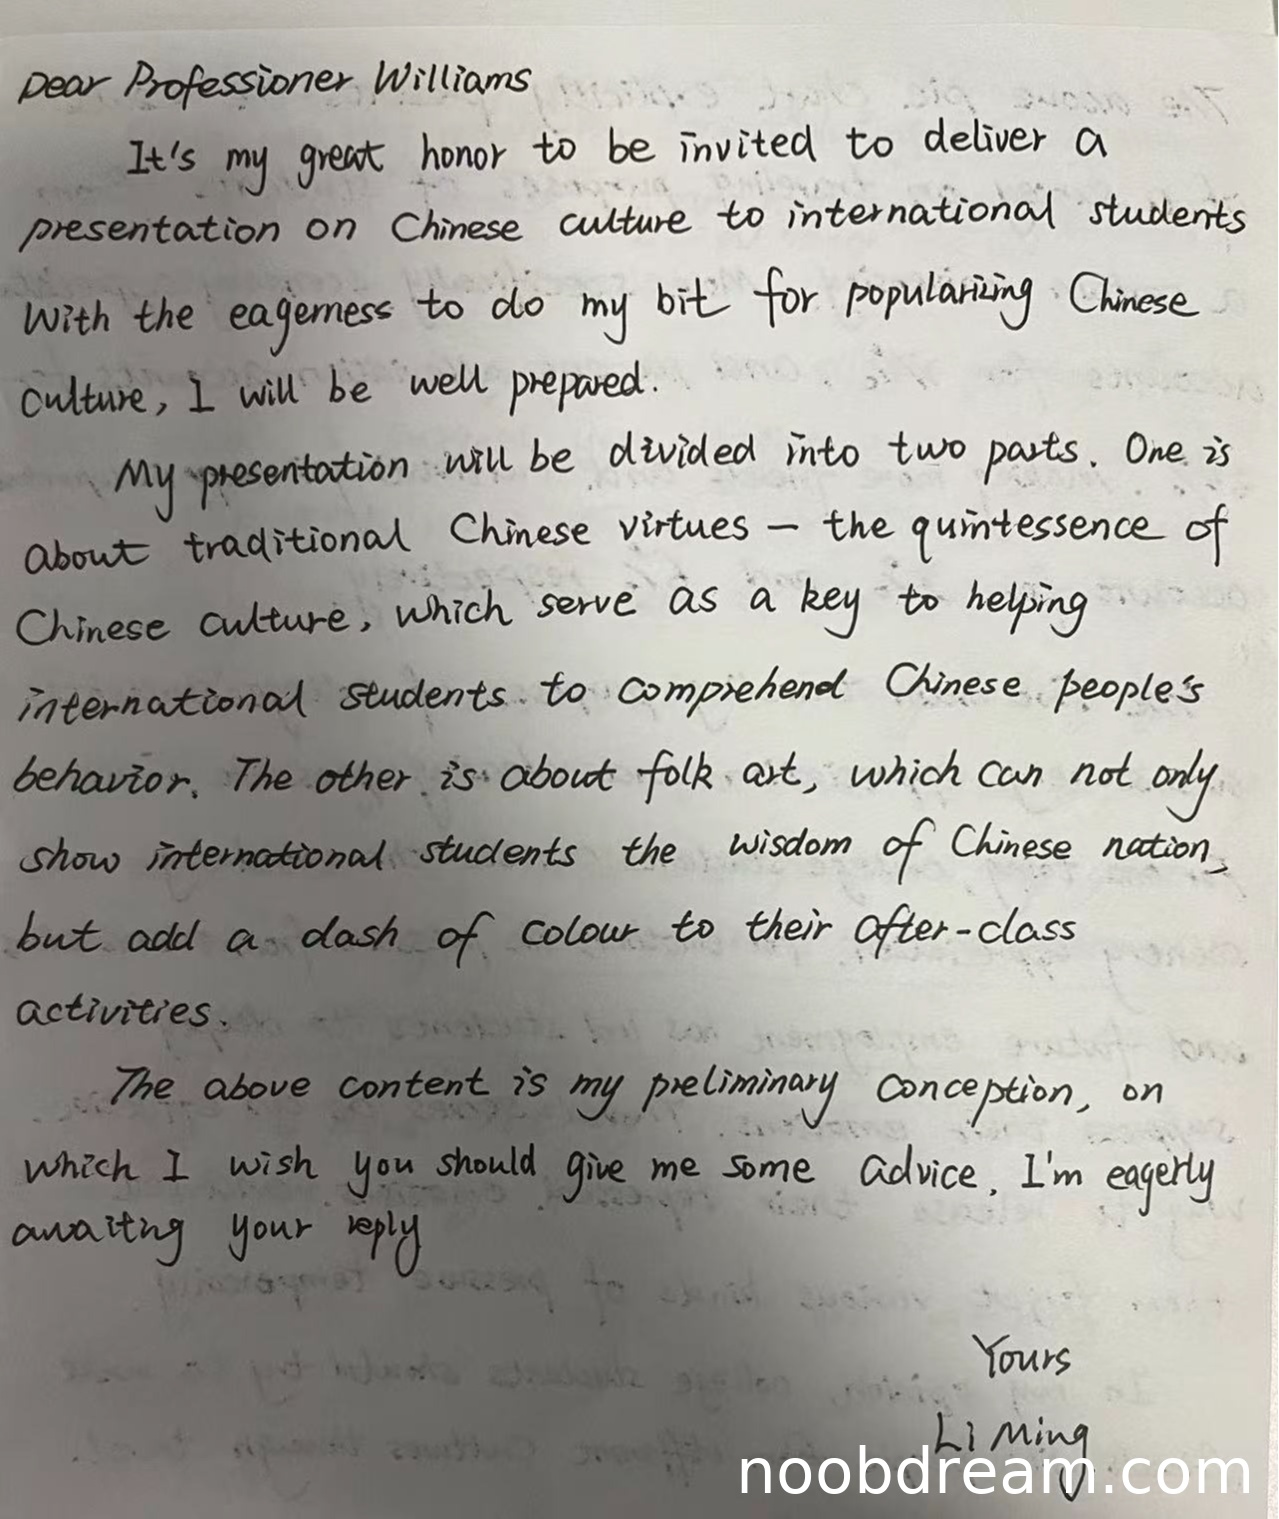 Dear Professioner Williams
It's my great honor to be invited to deliver a
presentation on Chinese culture to international students
With the eagerness to do my bit for popularizing Chinese
culture, I will be well prepared.
My presentation will be divided into two parts. One is
about traditional Chinese virtues — the quintessence of
Chinese culture, which serve as a key to helping
international students to comprehend Chinese people's
behavior. The other is about folk art, which can not only
show international students the wisdom of Chinese nation,
but add a dash of colour to their after-class
activities.
The above content is my preliminary conception, on
which I wish you should give me some advice. I'm eagerly
awaiting your reply
Yours
Li Ming
noobdream.com